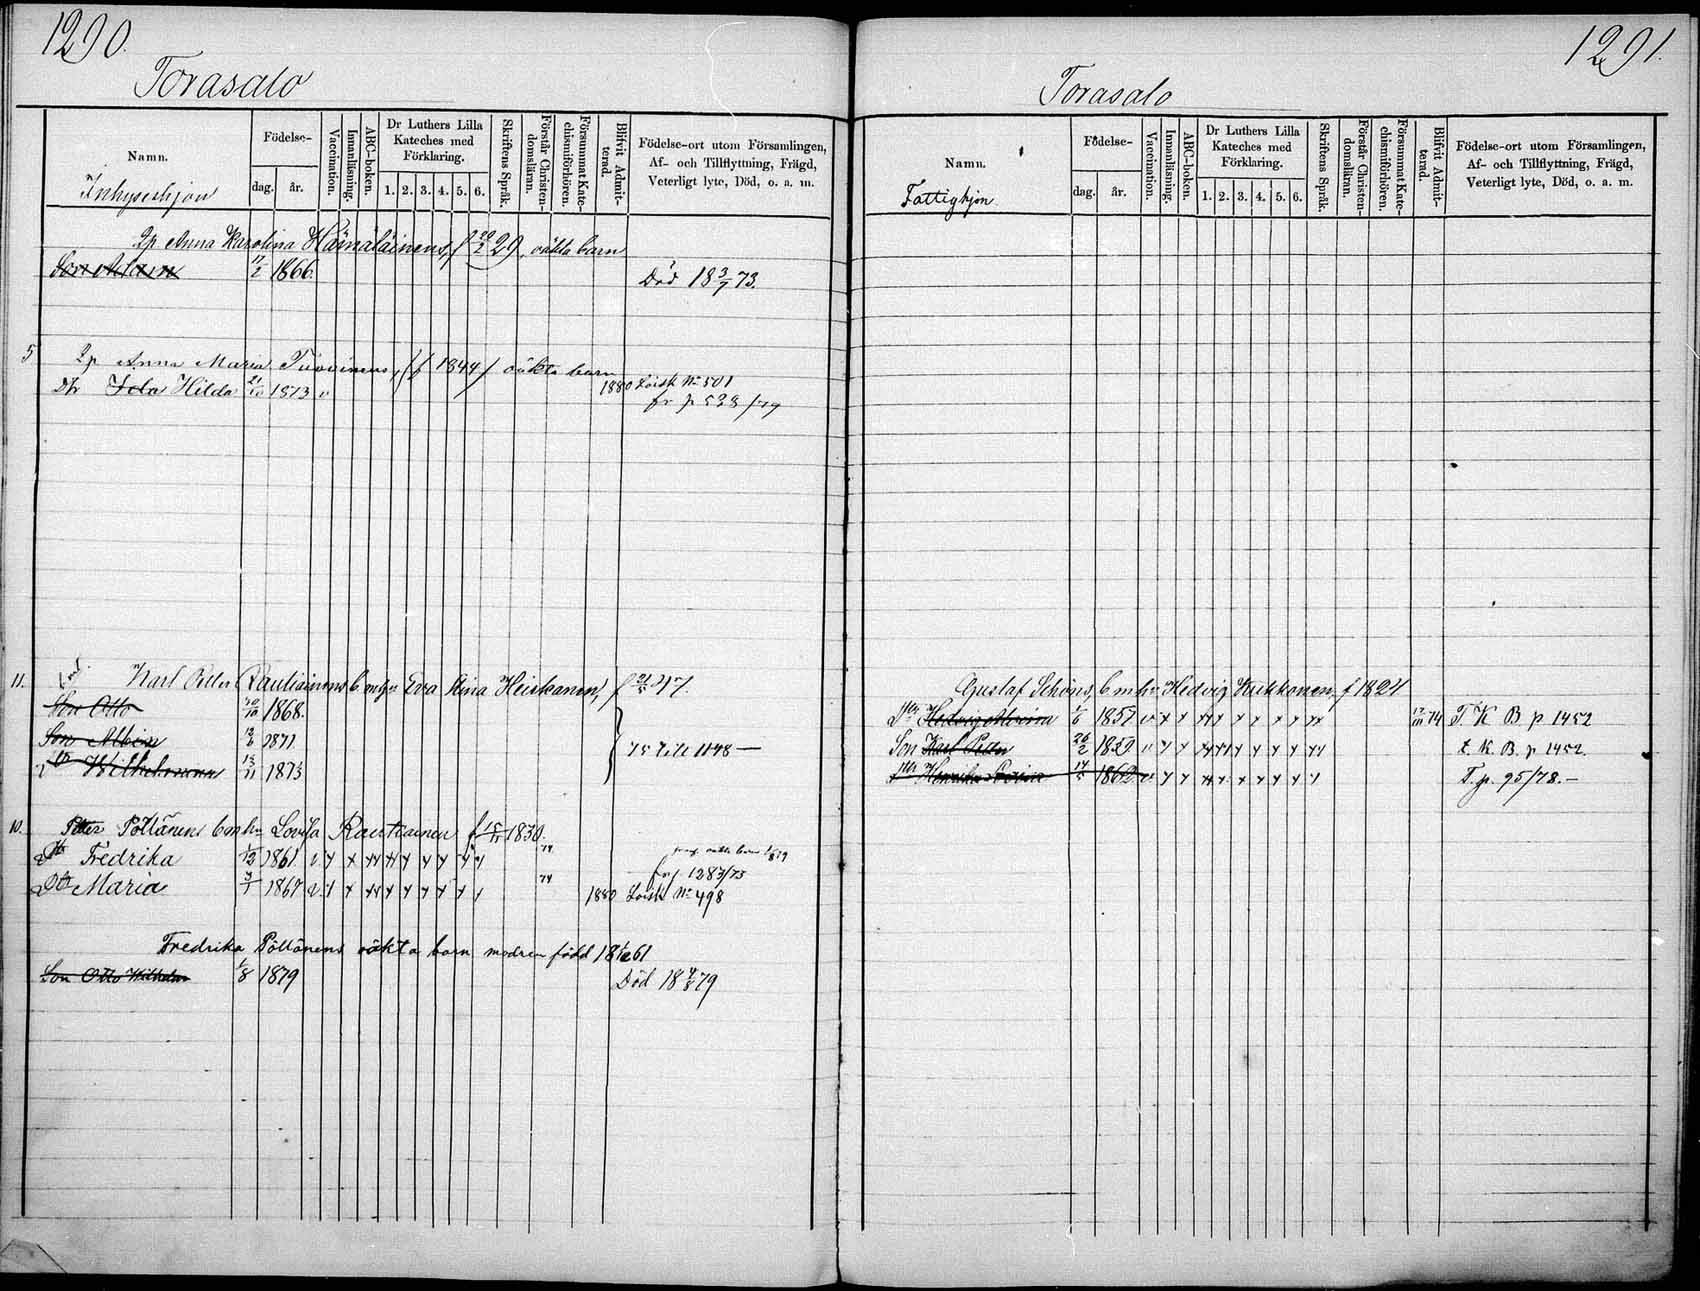 1290.
Torasalo
Namn.
Inhyseshjon
Födelse-
dag. år.
Vaccination.
Innanläsning.
ABC-boken.
Dr Luthers Lilla Kateches med Förklaring.
1. 2. 3. 4. 5. 6.
Skriftens Språk.
Förstår Christendomsläran.
Försummat Katechismiförhören.
Blifvit Admitterad.
Födelse-ort utom Församlingen, Af- och Tillflyttning, Frägd, Veterligt lyte, Död, o. a. m.
Qp Anna Karolina Hämäläinens, f 20/2 29, oäkta barn
Son Adam 17/2 1866. Död 18 3/7 73.
5 Qp Anna Maria f 1844 oäkta barn
Dtr Ida Hilda 21/10 1873 v 1880 Loisk No 501
fr p 538/79
11. Karl Petter Rautiainens b. m. h. Eva Stina Heiskanen, f 21/5 47.
Son Otto 20/10 1868.
Son Albin 12/6 1871 75 till 1148 —
Dtr Wilhelmina 13/11 1873
10. Petter Pöllänens b m hu Lovisa Rautiainen f 15/11 1830.
Dtr Fredrika 1/12 1861 v x x xx xx x x x x x 74 oäkta barn 1/8 79
fr p 1283/75
Dtr Maria 3/1 1867 v x x xx x x x x x x 74 1880 Loisk No 498
Fredrika Pöllänens oäkta barn modren född 18 1/12 61
Son Otto Wilhelm 1/8 1879 Död 18 4/8 79
1291.
Torasalo
Namn.
Fattighjon
Födelse-
dag. år.
Vaccination.
Innanläsning.
ABC-boken.
Dr Luthers Lilla Kateches med Förklaring.
1. 2. 3. 4. 5. 6.
Skriftens Språk.
Förstår Christendomsläran.
Försummat Katechismiförhören.
Blifvit Admitterad.
Födelse-ort utom Församlingen, Af- och Tillflyttning, Frägd, Veterligt lyte, Död, o. a. m.
Gustaf Schöns, b m hu Hedvig Kukkonen, f 1824
Dtr Hedvig 1/6 1857 v x x xx x x x x x xx 74 T. K B p 1452
Son Karl Petter 26/2 1859 v x x xx xx x x x x xx t. K. B. p. 1452.
Dtr Henrika 14/5 1862 v x x xx x x x x x x T. p. 95/78.—